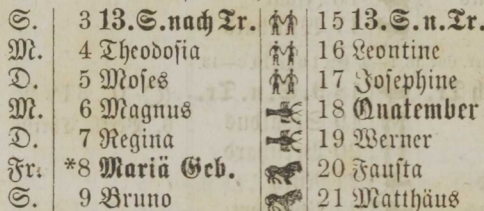 S. 3 13.S.nach Tr. 15 13.S.n.Tr.
M. 4 Theodosia 16 Leontine
D. 5 Moses 17 Josephine
M. 6 Magnus 18 Quatember
D. 7 Regina 19 Werner
Fr. *8 Mariä Geb. 20 Fausta
S. 9 Bruno 21 Matthäus